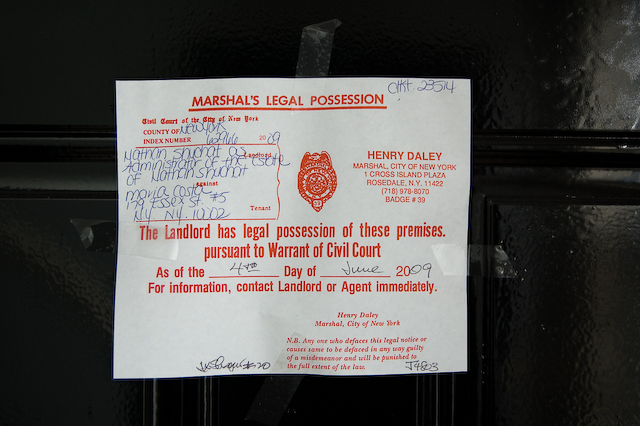 CHKT 23514
MARSHAL'S LEGAL POSSESSION
Civil Court of the City of New York
COUNTY OF NEW YORK
INDEX NUMBER 2009
Nathan Shuchat as
Landlord
Administrator of the Estate
OF Nathan Shuchat
against
Maria Costa
179 Essex St. #5
Tenant
NY NY. 10002
HENRY DALEY
MARSHAL, CITY OF NEW YORK
1 CROSS ISLAND PLAZA
ROSEDALE, N.Y. 11422
(718) 978-8070
BADGE # 39
The Landlord has legal possession of these premises.
pursuant to Warrant of Civil Court
As of the 4th Day of June 2009
For information, contact Landlord or Agent immediately.
Henry Daley
Marshal, City of New York
N.B. Any one who defaces this legal notice or
causes same to be defaced in any way guilty
of a misdemeanor and will be punished to
the full extent of the law.
J4823